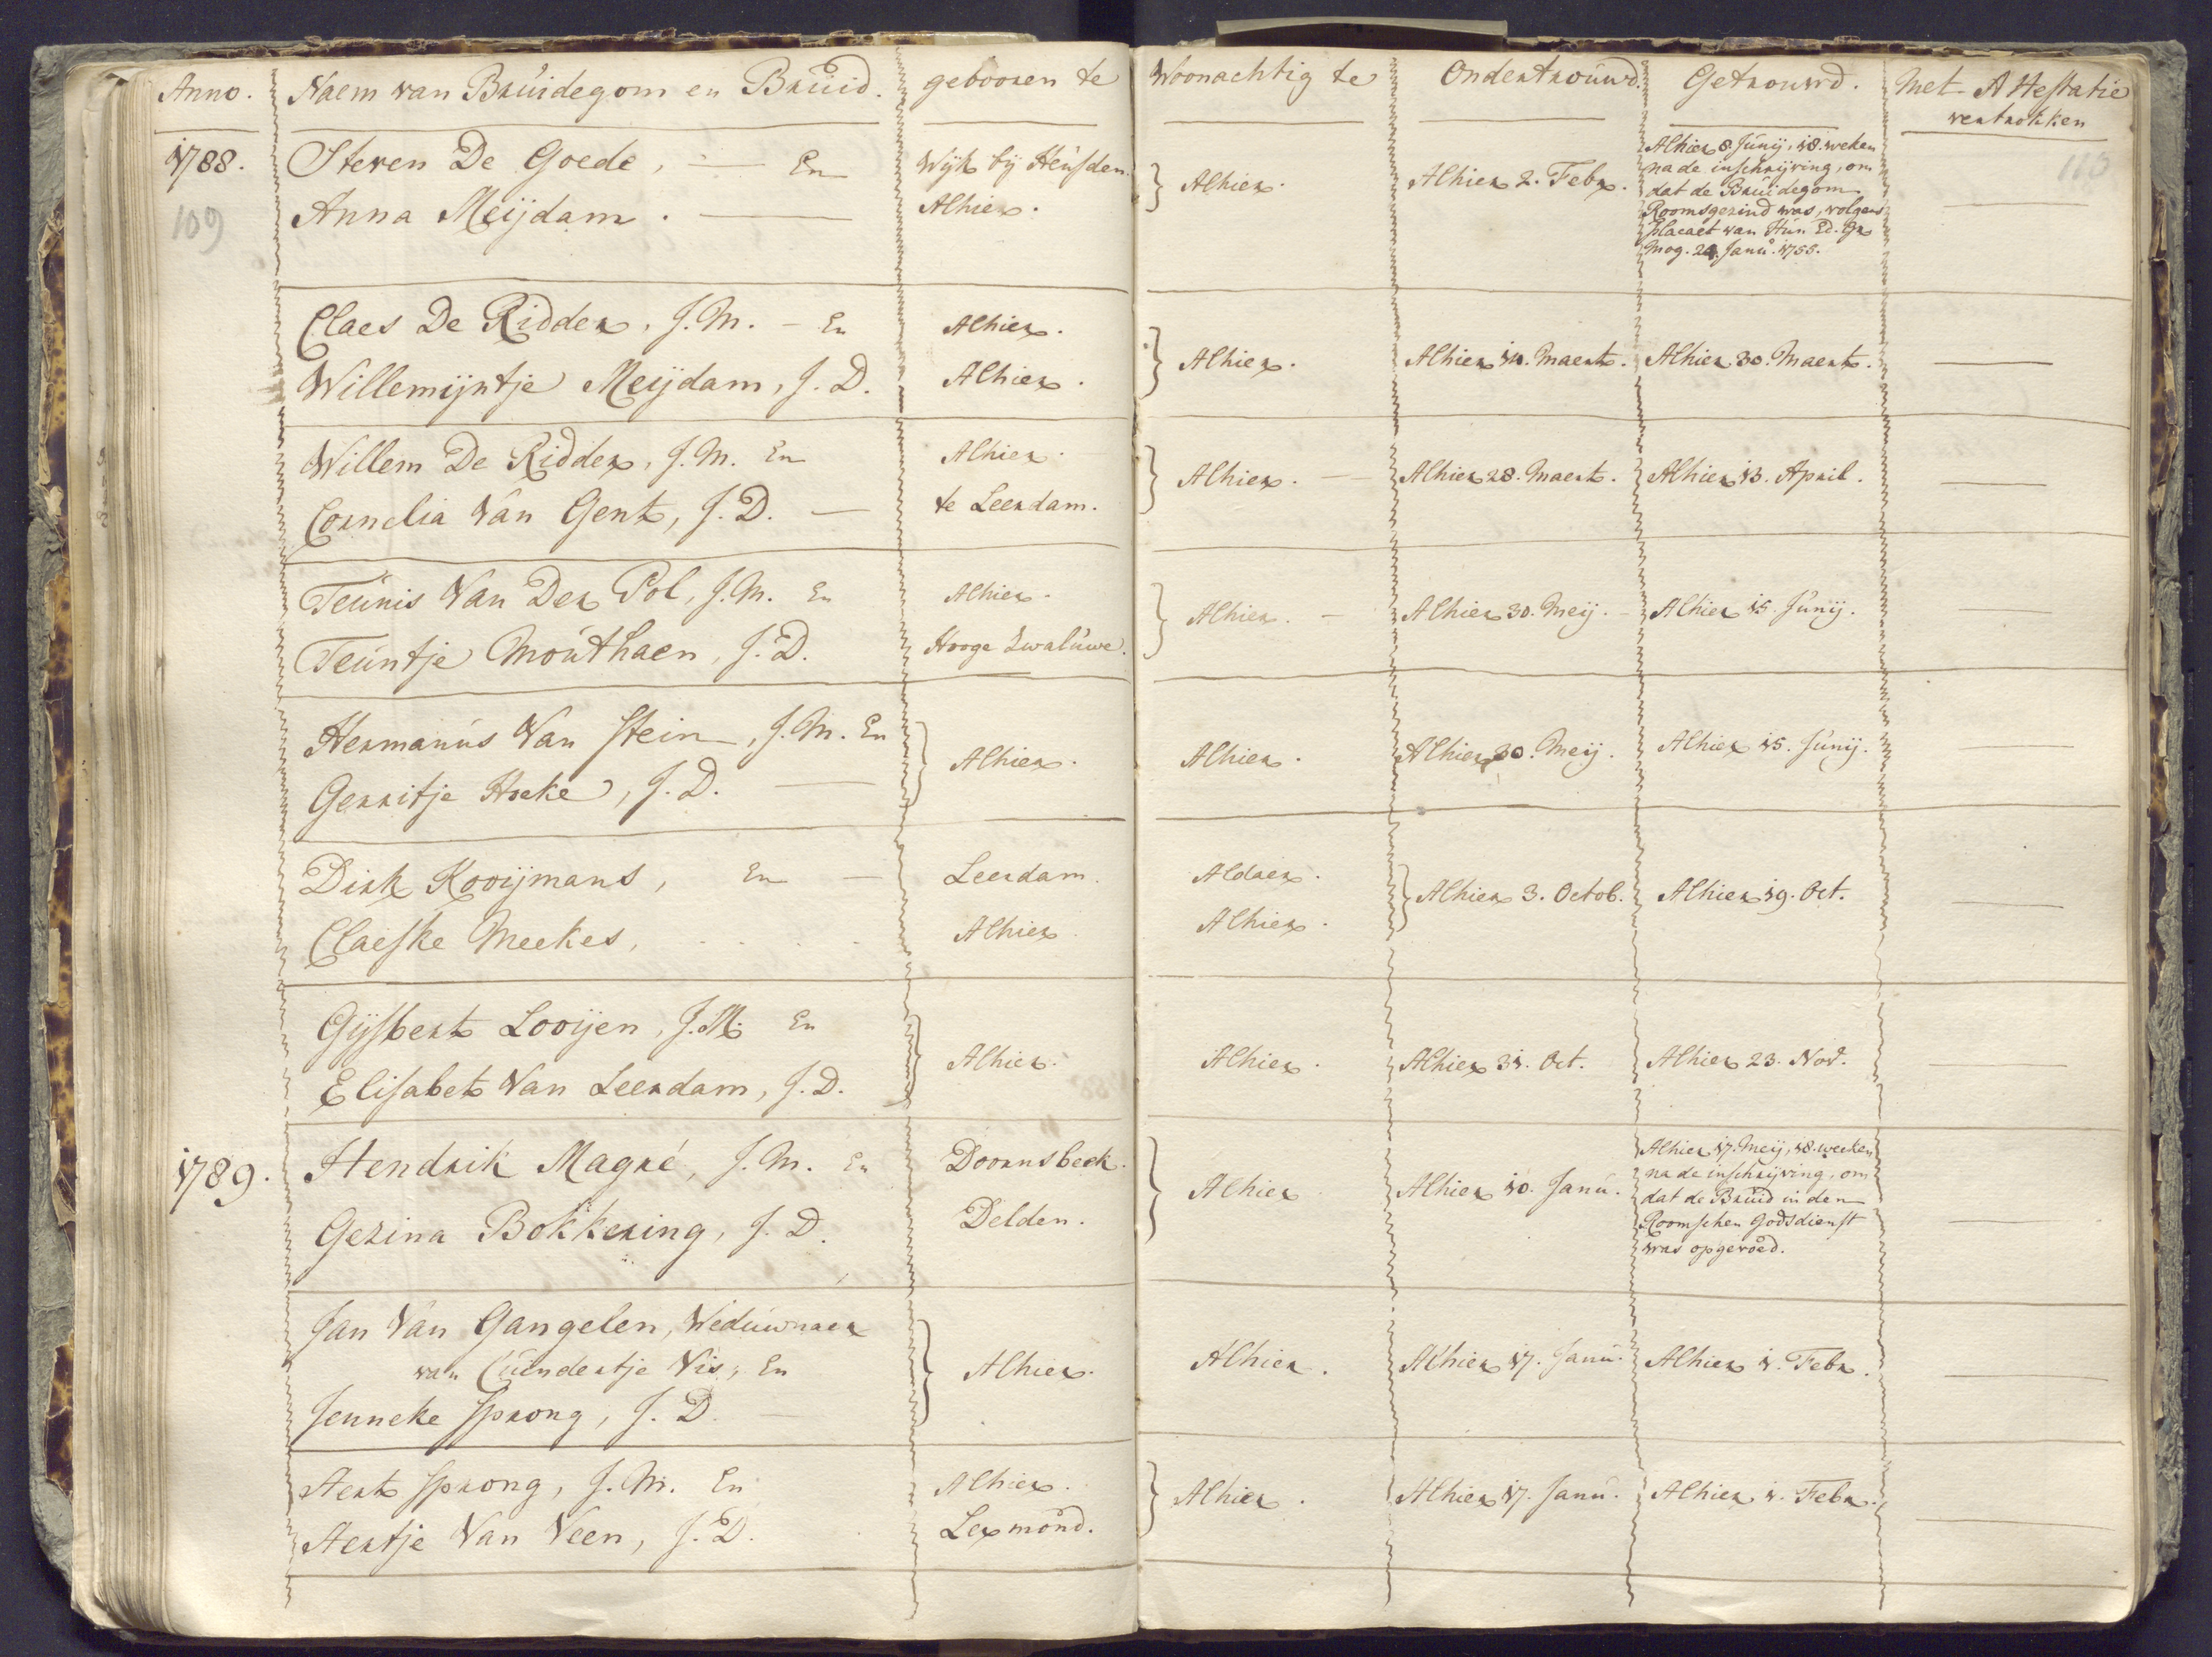 Anno. Naem van Bruidegom en Bruid. gebooren te Woonachtig te Ondertrouwd. Getrouwd. Met Attestatie
vertrokken
1788. Steven De Goede, — En Wijk bij Heusden. } Alhier. Alhier 2. Febr. Alhier 8 Junij, 18. weken
na de inschrijving, om
dat de Bruidegom
Roomsgezind was, volgens
placaet van Hun Ed. Gr
Mog. 24. Janu. 1755.
Anna Meijdam. — Alhier.
109
110
Claes De Ridder, J.M. — En Alhier. } Alhier. Alhier 14. Maert. Alhier 30. Maert.
Willemijntje Meijdam, J.D. Alhier.
Willem De Ridder, J.M. En Alhier. } Alhier. — Alhier 28. Maert. Alhier 13. April.
Cornelia Van Gent, J.D. — te Leerdam.
Teunis Van Der Pol, J.M. En Alhier. } Alhier. — Alhier 30. Meij. — Alhier 15. Junij.
Teuntje Mouthaen, J.D. Hooge Zwaluwe.
Hermanus Van Stein, J.M. En } Alhier. Alhier. Alhier 30. Meij. Alhier 15. Junij.
Gerritje Hoeke, J.D. —
Dirk Kooijmans, En — Leerdam. Aldaer. } Alhier 3. Octob. Alhier 19. Oct.
Claeske Meekes, Alhier Alhier.
Gijsbert Looijen, J.M. En } Alhier. Alhier. Alhier 31. Oct. Alhier 23. Nov.
Elisabet Van Leerdam, J.D.
1789. Hendrik Magré, J.M. En Doornsbeek. } Alhier Alhier 10. Janu. Alhier 17. Meij, 18. weeken
na de inschrijving, om
dat de Bruid in den
Roomschen Godsdienst
was opgevoed.
Gezina Bokkering, J.D. Delden.
Jan Van Gangelen, Weduwnaer
van Cuendertje Vis, En } Alhier. Alhier. Alhier 17. Janu. Alhier 1. Febr.
Jenneke Sprong, J.D. —
Aert Sprong, J.M. En Alhier. } Alhier. Alhier 17. Janu. Alhier 1. Febr.
Aertje Van Veen, J.D. Lexmond.